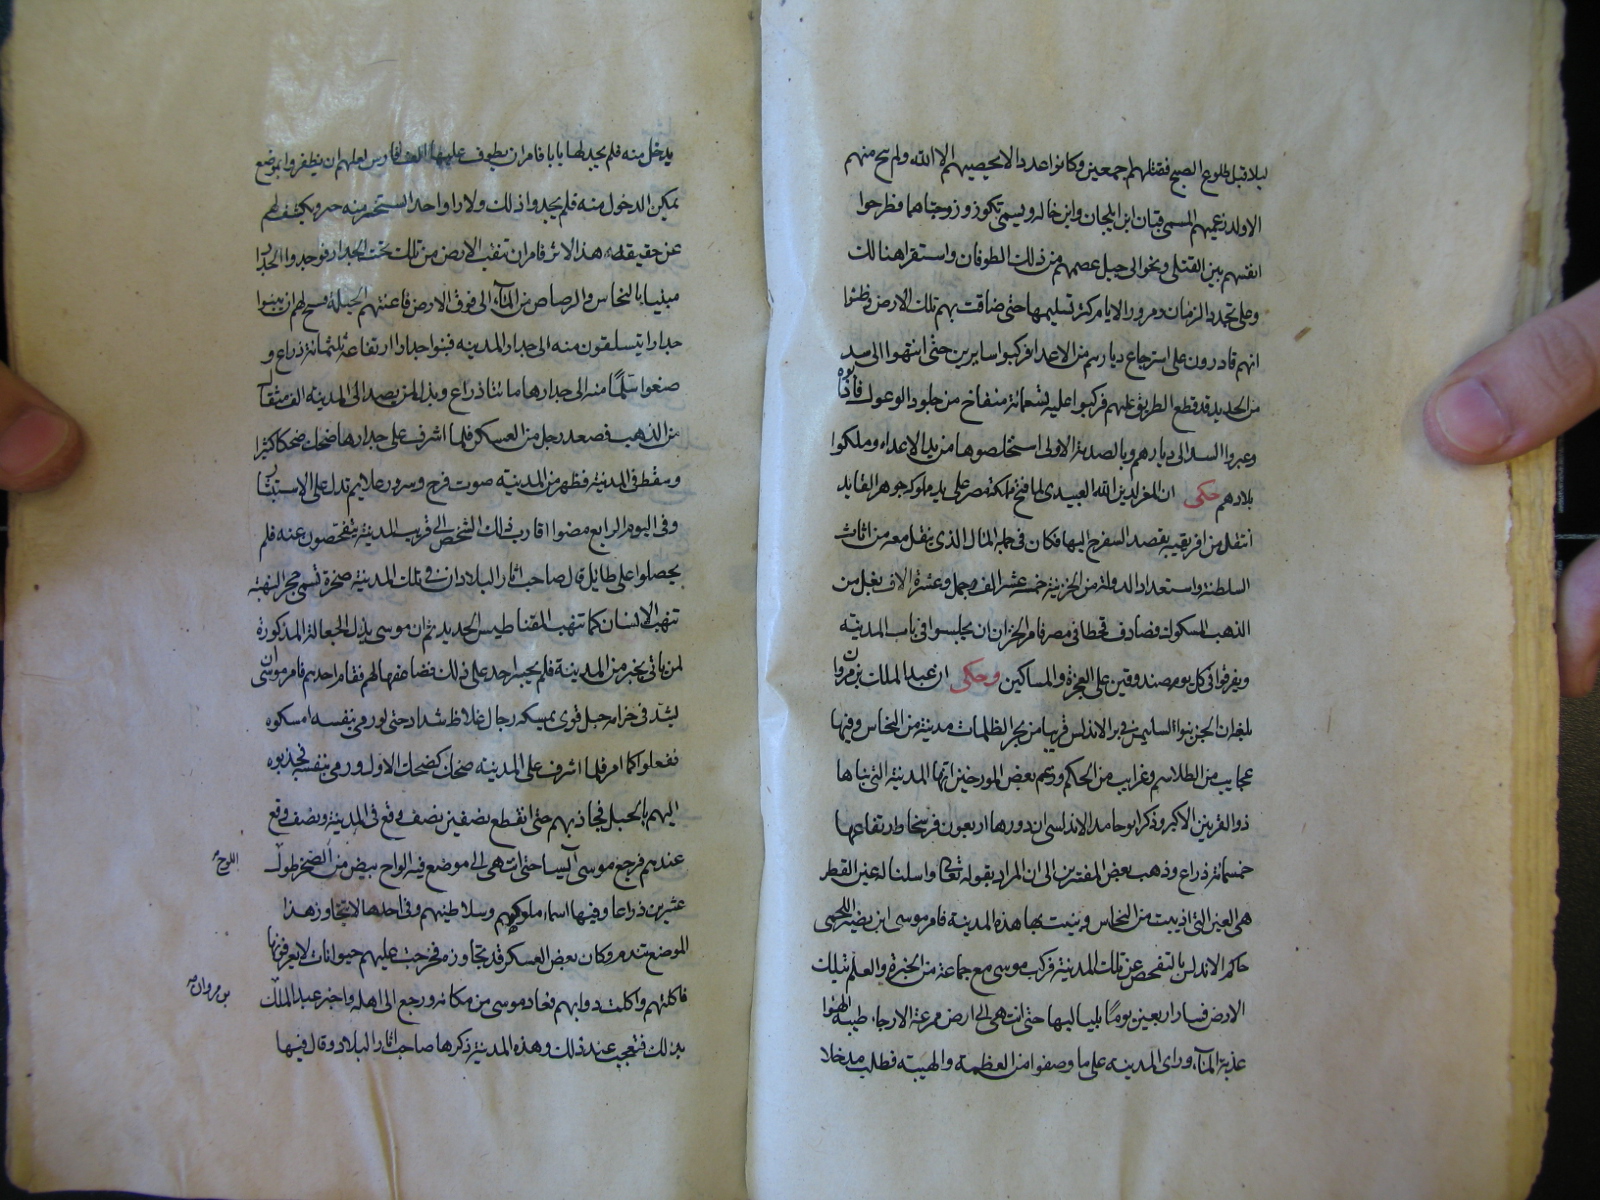 ليلا قبل طلوع الصبح فقتلهم اجمعين وكانوا عددا لا يحصيهم الا الله ولم ينج منهم
الا ولد زعيمهم المسمى قيان ابن ايلجان وابن خاله ويسمى تكوز وزوجتاهما فطرحوا
انفسهم بين القتلى ونحوا الى جبل عصمهم من ذلك الطوفان واستقرا هنالك
وعلى تجدد الزمان ومرور الايام كثر تسليمها حتى ضاقت بهم تلك الارض وظنوا
انهم قادرون على استرجاع ديارهم من الاعداء فركبوا سايرين حتى انتهوا الى سد
من الحديد قد قطع الطريق عليهم فركبوا عليه تسعمائة منفاخ من جلود الوعول فأذابوه
وعبروا السد الى ديارهم وبالصدمة الاولى استخلصوها من يد الاعداء وملكوا
بلادهم حكى ان المعز لدين الله العبيدى لما فتح مملكة مصر على يد ملوكه جوهر القايد
انتقل من افريقية بقصد السفر اليها فكان فى جملة المال الذى ينقل معه من اثاث
السلطنة واستعداد الدولة من الخزينة خمسة عشر الف جمل وعشرة الاف بغل من
الذهب المسكوك فصادف قحطا فى مصر فامر الخزان ان يجلسوا فى باب المدينة
ويفرقوا فى كل يوم صندوقين على العجزة والمساكين وحكى ان عبد الملك بن مروان
بلغه ان الجن بنوا لسليمن فى بر الاندلس قريبا من بحر الظلمات مدينة من النحاس وفيها
عجايب من الطلاسم وغرايب من الحكم وزعم بعض المورخين انها المدينة التى بناها
ذو القرنين الاكبر وذكر ابو حامد الاندلسى ان دورها اربعون فرسخا وارتفاعها
خمسمائة ذراع وذهب بعض المفسرين الى ان المراد بقوله تعالى واسلنا له عين القطر
هى العين التى اذيبت من النحاس وبنيت بها هذه المدينة فامر موسى ابن نصير اللخمى
حاكم الاندلس بالتفحص عن تلك المدينة فركب موسى مع جماعة من الخبرة والعلم بتلك
الارض فسار اربعين يومًا بلياليها حتى انتهى الى ارض مرعة الارجاء طيبة الهوا
عذبة المآء وراى المدينه على ما وصفوا من العظمة والهيبة فطلب مدخلا
يدخل منه فلم يجد لها بابا فامر ان يطوف عليها الف فارس لعلهم ان يظفروا بموضع
يمكن الدخول منه فلم يجدوا ذلك ولا راوا احدا يستخبر منه حتى يكشف لهم
عن حقيقة هذا الاثر فامر ان تنقب الارض من تلك تحت الجدار فوجدوا الجدار
مبنيا بالنحاس والرصاص من المآء الى فوق الارض فاعيتهم الحيلة فسح لهم ان يبنوا
جدارا يتسلقون منه الى جدار المدينه فبنوا جدارا ارتفاعه ثلثمائة ذراع و
صنعوا سُلّمًا منه الى جدارها مائتا ذراع وبذل لمن يصعد الى المدينه الف مثقال
من الذهب فصعد رجل من العسكر فلما اشرف على جدارها ضحك ضحكا كثيرا
وسقط فى المدينة فظهر من المدينه صوت فرح وسرور علايم تدل على الاستبشار
وفى اليوم الرابع مضوا اقارب ذلك الشخص الى قريب المدينة يتفحصون عنه فلم
يحصلوا على طايل قال صاحب اثار البلاد ان فى تلك المدينة صخرة تسمى حجر البهتة
تنهب الانسان كما تنهب المقناطيس الحديد ثم ان موسى بذل الجعالة المذكورة
لمن ياتى بخبر من المدينة فلم يجبه احد على ذلك فضاعفها لهم فقام احدهم فامر موسى ان
يشد فى حزامه حبل قوى يمسكه رجال غلاظ شداد حتى لو رمى بنفسه امسكوه
ففعلوا كما امر فلما اشرف على المدينه ضحك كضحك الاول ورمى بنفسه فجذبوه
اليهم بالحبل فتجاذبهم حتى انقطع نصفين نصف وقع فى المدينة ونصف وقع
عندهم فرجع موسى آيسا حتى انتهى الى موضع فيه الواح بيض من الصخر طول اللوح
عشرين ذراعا وفيها اسماء ملوكهم وسلاطينهم وفى احدها لا يتجاوز هذا
الموضع يتندم وكان بعض العسكر قد تجاوزه فخرجت عليهم حيوانات لا يعرفونها
فاكلتهم واكلت دوابهم فعاد موسى من مكانه ورجع الى اهله واخبر عبد الملك بن مروان
بذلك فتعجب عند ذلك وهذه المدينة ذكرها صاحب اثار البلاد وقال فيها